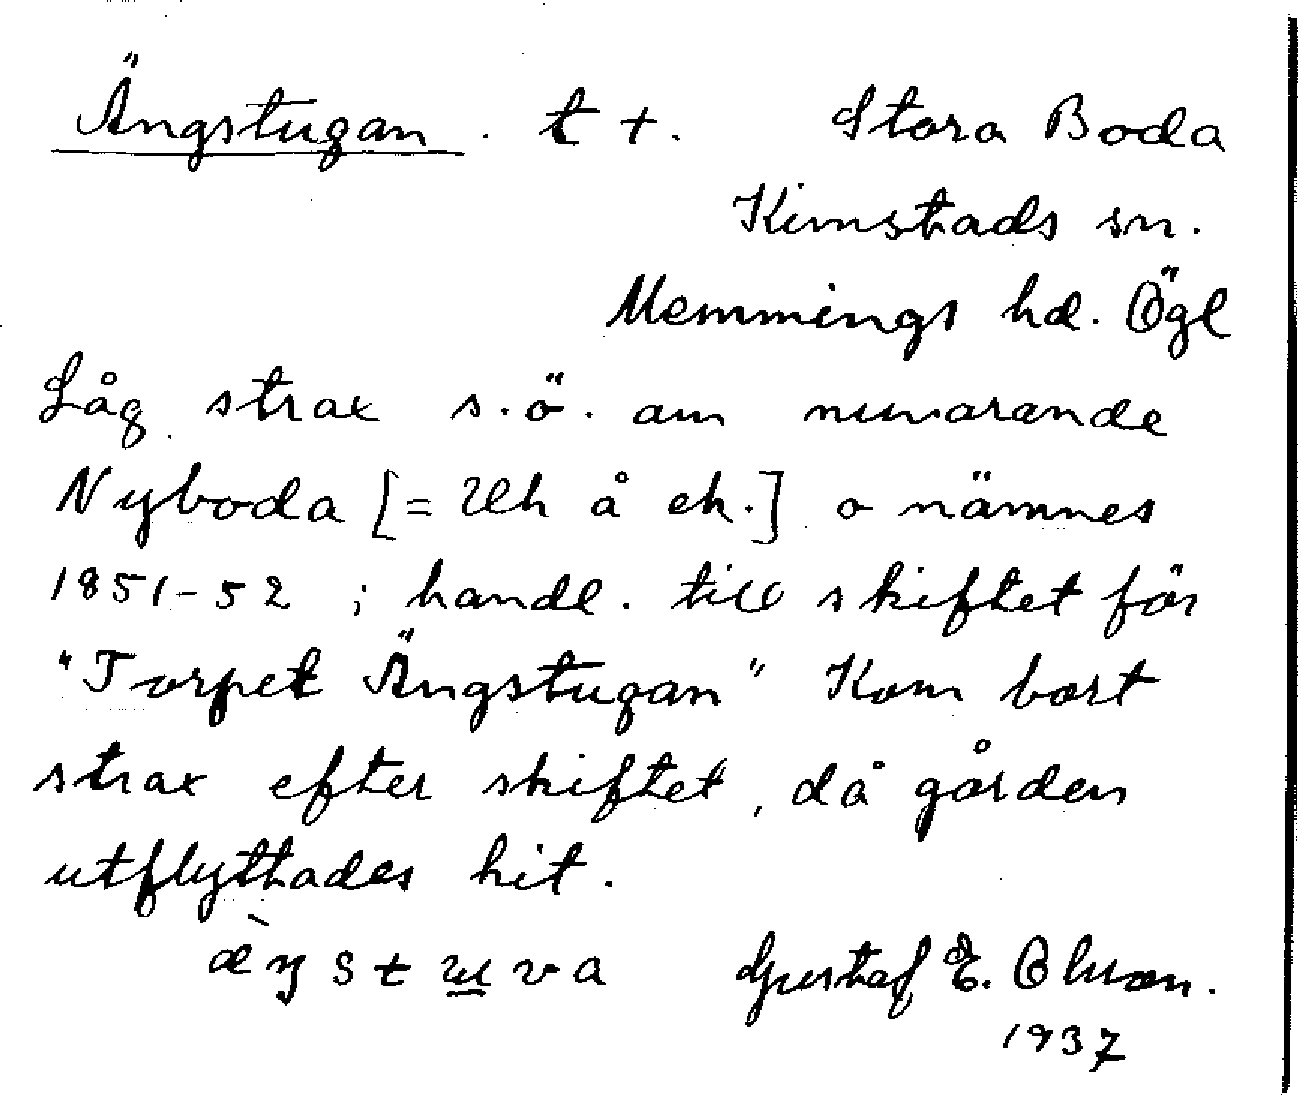 Ängstugan. t +. Stora Boda
Kimstads sn.
Memmings hd. Ögl
Låg strax s.ö. om nuvarande
Nyboda [= Uh å ek.] o nämnes
1851-52 i handl. till skiftet för
"Torpet Ängstugan" Kom bort
strax efter skiftet, då gården
utflyttades hit.
æ̀ŋstuva Gustaf E. Olsson.
1937